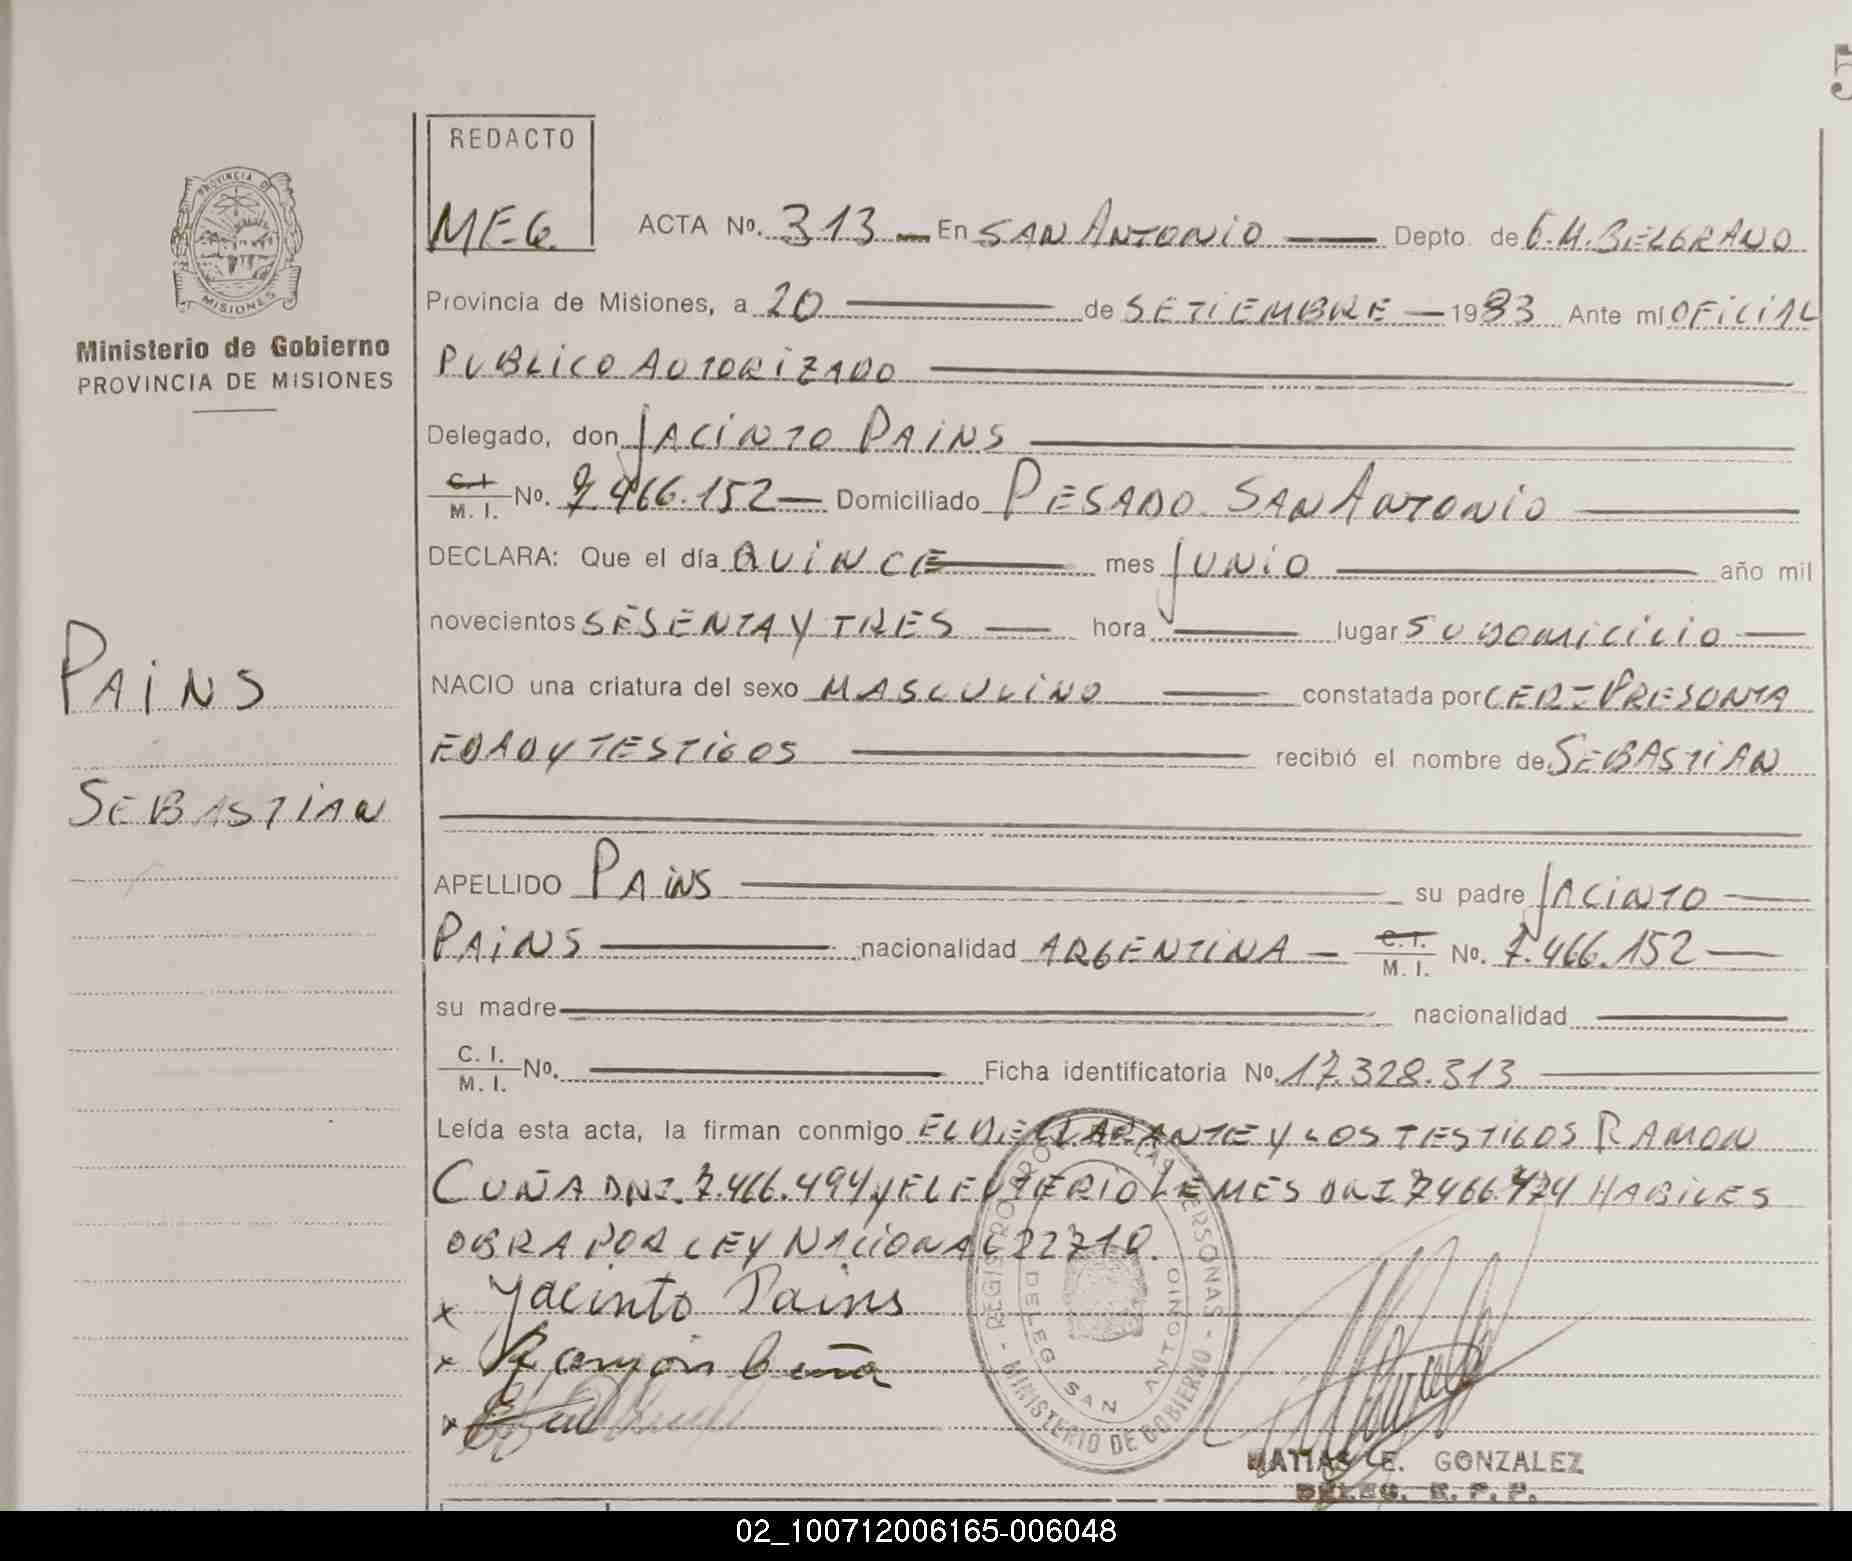 5
REDACTO
M.E.G.
ACTA No. 313 En SAN ANTONIO Depto. de G.M.BELGRANO
Provincia de Misiones, a 20 de SETIEMBRE 1983 Ante mí OFICIAL
PUBLICO AUTORIZADO
PROVINCIA DE
MISIONES
Ministerio de Gobierno
PROVINCIA DE MISIONES
Delegado, don JACINTO PAINS
C.I. M. I. No. 7.466.152 Domiciliado PESADO SAN ANTONIO
DECLARA: Que el día QUINCE mes JUNIO año mil
novecientos SESENTA Y TRES hora lugar SU DOMICILIO
PAINS
NACIO una criatura del sexo MASCULINO constatada por CERT PRESONTA
EDAD Y TESTIGOS recibió el nombre de SEBASTIAN
SEBASTIAN
APELLIDO PAINS su padre JACINTO
PAINS nacionalidad ARGENTINA C.I. M. I. No. 7.466.152
su madre nacionalidad
C. I. M. I. No. Ficha identificatoria No. 17.328.313
Leída esta acta, la firman conmigo EL DECLARANTE Y LOS TESTIGOS RAMON
CUÑA DNI 7.466.494 y ELEUTERIO LEMES DNI 7466474 HABILES
OBRA POR LEY NACIONAL 22710.
x Jacinto Pains
x Ramón Cuña
x
REGISTRO PROV. DE LAS PERSONAS
MINISTERIO DE GOBIERNO
DELEG. SAN ANTONIO
MATIAS E. GONZALEZ
DELEG. R. P. P.
02_100712006165-006048